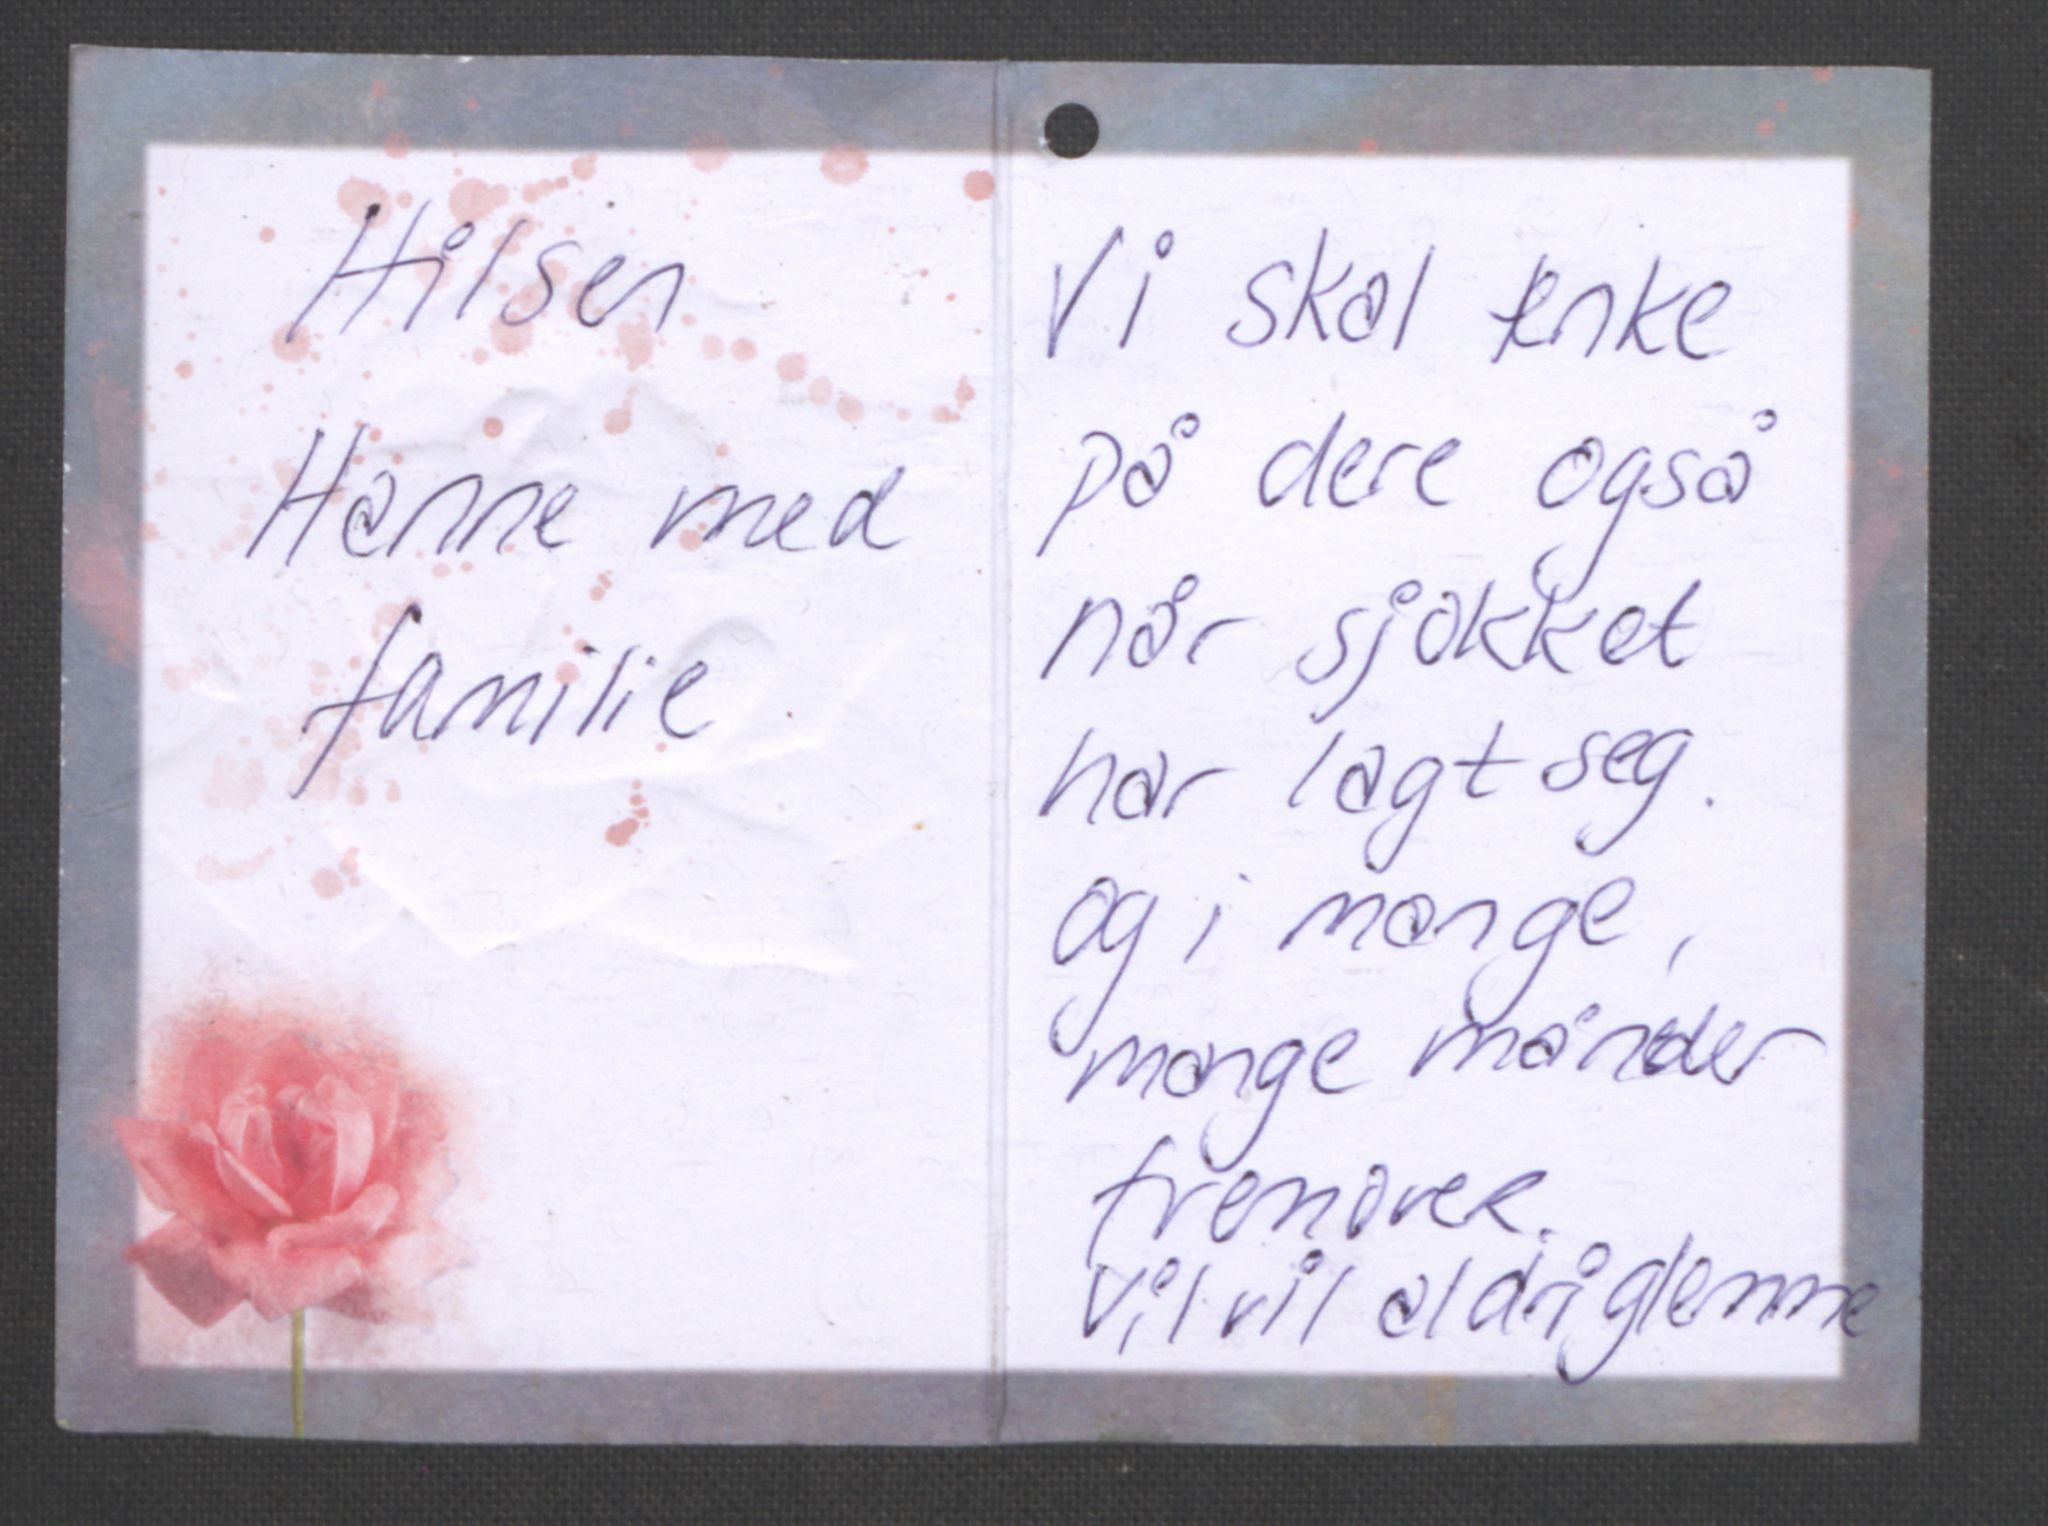 Hilsen
Hanne med
familie
Vi skal tenke
på dere også
når sjokket
har lagt seg.
og i mange,
mange månder
fremover.
Vil vil aldri glemme